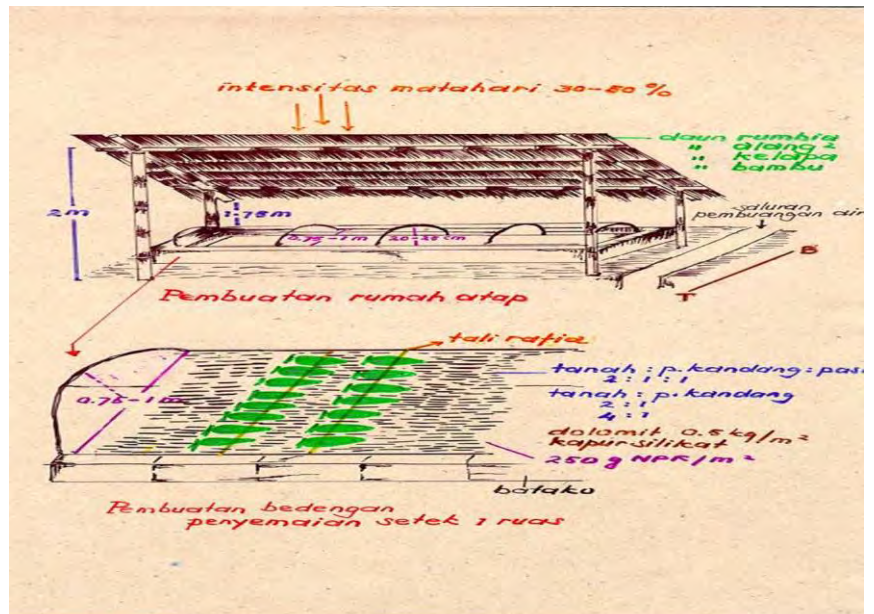 intensitas matahari 30-50%
daun rumbia
" alang²
" kelapa
" bambu
2 m
1.75 m
saluran
pembuangan air
0.75-1 m
20-25 cm
B
T
Pembuatan rumah atap
tali rafia
0.75-1 m
tanah : p.kandang : pasi
2 : 1 : 1
tanah : p.kandang
2 : 1
4 : 1
dolomit 0.5 kg/m²
kapur silikat
250 g NPK/m²
batako
Pembuatan bedengan
penyemaian setek 1 ruas